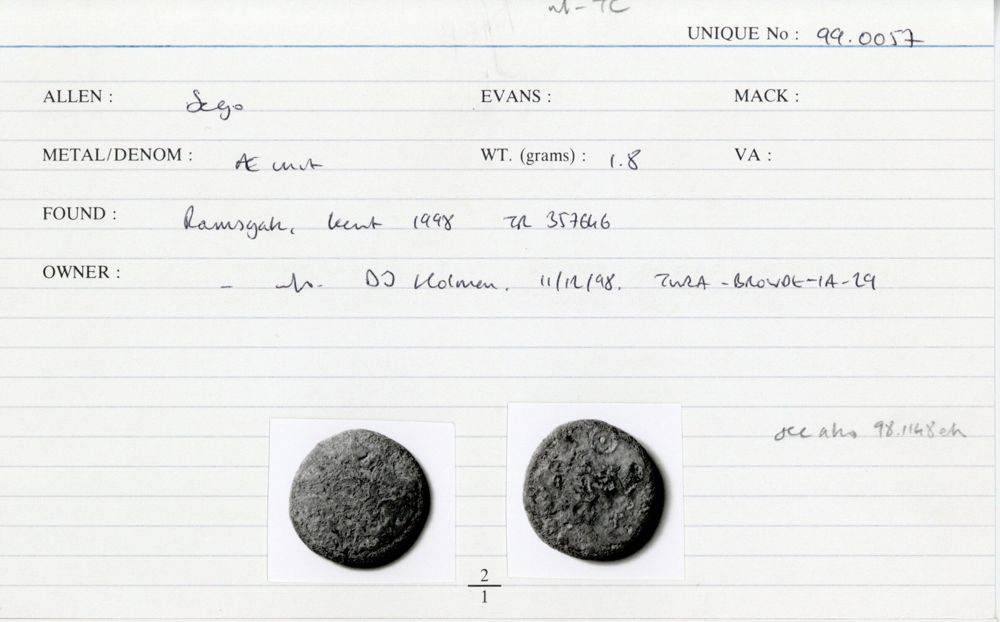 UNIQUE No : 99.0057
ALLEN : Sego EVANS : MACK :
METAL/DENOM : Æ unit WT. (grams) : 1.8 VA :
FOUND : Ramsgate, Kent 1998 TR 357646
OWNER : - info. DJ Holman, 11/12/98. TWRA-BROWDE-IA-29
see also 98.1148 etc
2
1